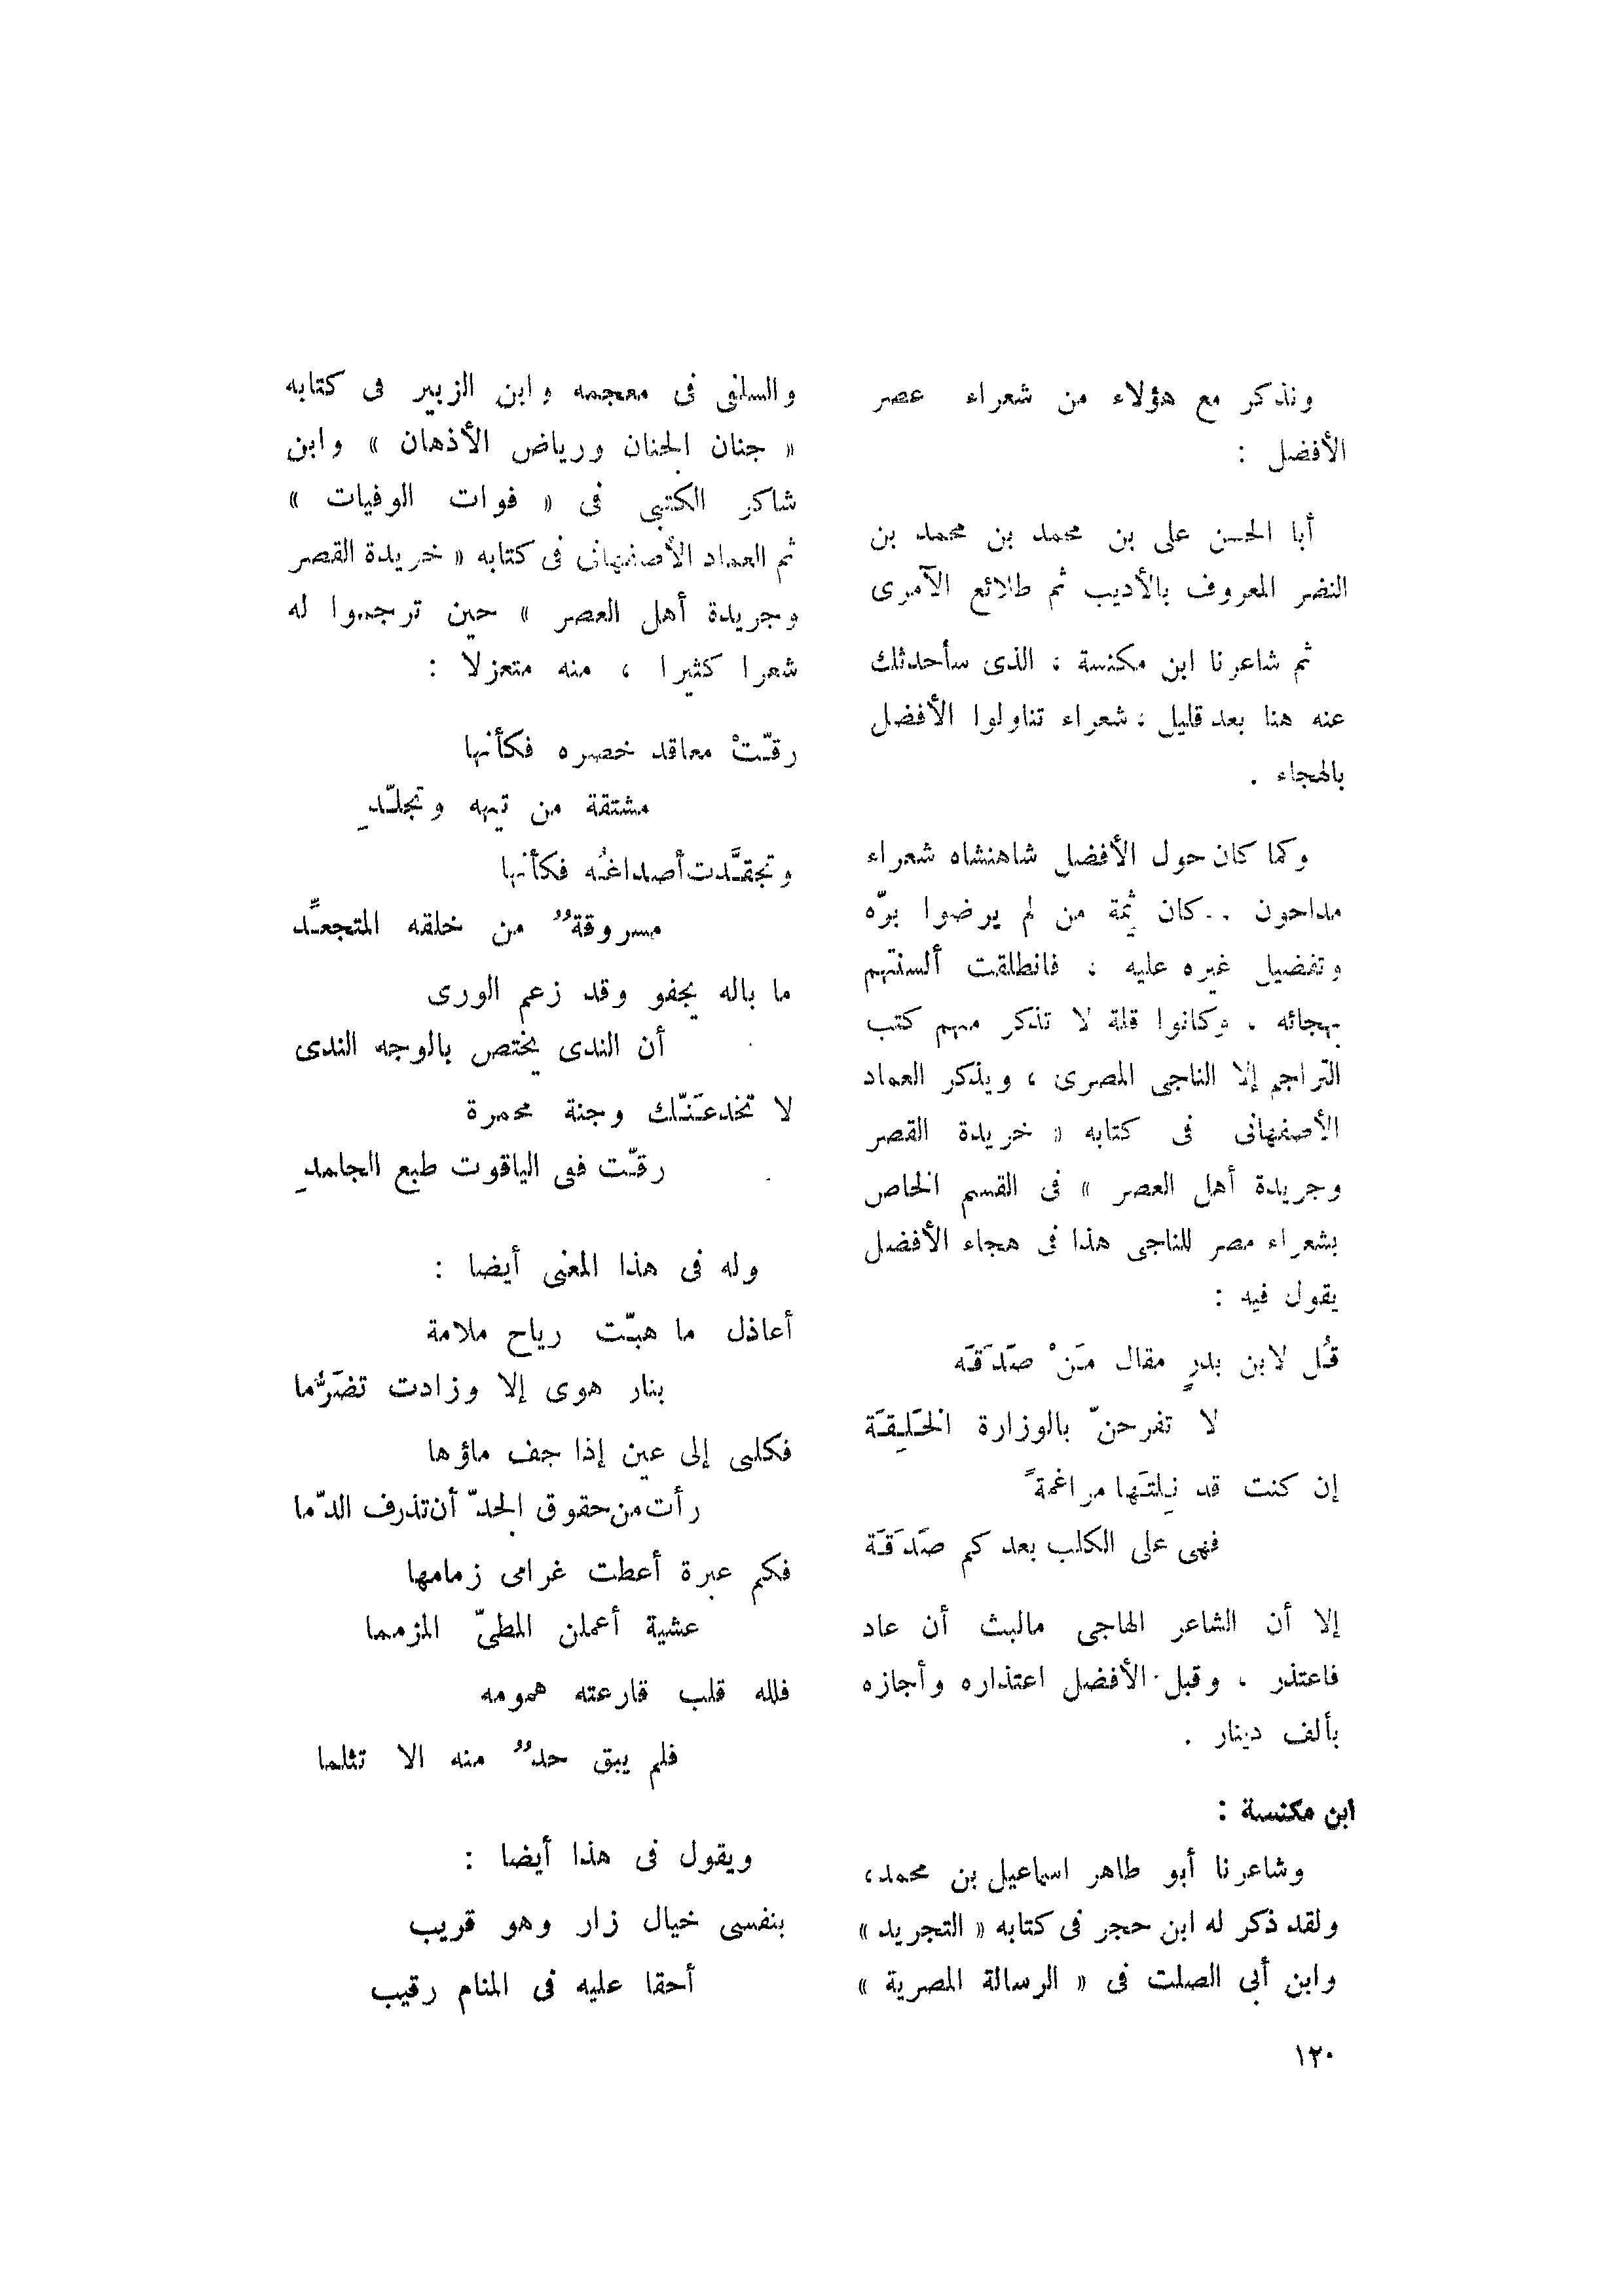 ونذكر مع هؤلاء من شعراء عصر
الأفضل :
أبا الحسن على بن محمد بن محمد بن
النضر المعروف بالأديب ثم طلائع الآمرى
ثم شاعرنا ابن مكنسة ، الذى سأحدثك
عنه هنا بعد قليل ، شعراء تناولوا الأفضل
بالهجاء .
وكما كان حول الأفضل شاهنشاه شعراء
مداحون .. كان ثمة من لم يرضوا برّه
وتفضيل غيره عليه ، فانطلقت ألسنتهم
بهجائه ، وكانوا قلة لا تذكر منهم كتب
التراجم إلا الناجى المصرى ، ويذكر العماد
الأصفهانى فى كتابه « خريدة القصر
وجريدة أهل العصر » فى القسم الخاص
بشعراء مصر للناجى هذا فى هجاء الأفضل
يقول فيه :
قُل لابن بدرٍ مقال مَنْ صَدَقَه
لا تفرحنّ بالوزارة الخَلِقَة
إن كنت قد نِلتَها مراغمةً
فهى على الكلب بعد كم صَدَقَة
إلا أن الشاعر الهاجى مالبث أن عاد
فاعتذر ، وقبل الأفضل اعتذاره وأجازه
بألف دينار .
ابن مكنسة :
وشاعرنا أبو طاهر اسماعيل بن محمد،
ولقد ذكر له ابن حجر فى كتابه « التجريد »
وابن أبى الصلت فى « الرسالة المصرية »
والسلفى فى معجمه وابن الزبير فى كتابه
« جنان الجنان ورياض الأذهان » وابن
شاكر الكتبى فى « فوات الوفيات »
ثم العماد الأصفهانى فى كتابه « خريدة القصر
وجريدة أهل العصر » حين ترجموا له
شعرا كثيرا ، منه متعزلا :
رقّتْ معاقد خصره فكأنها
مشتقة من تيهه وتجلّدِ
وتجقَّدت أصداغُه فكأنها
مسروقةٌ من خلقه المتجعِّد
ما باله يجفو وقد زعم الورى
أن الندى يختص بالوجه الندى
لا تخدعَنّك وجنة محمرة
رقّت ففى الياقوت طبع الجامدِ
وله فى هذا المغنى أيضا :
أعاذل ما هبّت رياح ملامة
بنار هوى إلا وزادت تضَرُّما
فكلى إلى عين إذا جف ماؤها
رأت من حقوق الجدّ أن تذرف الدّما
فكم عبرة أعطت غرامى زمامها
عشية أعملن المطىّ المزمما
فلله قلب قارعته همومه
فلم يبق حدٌ منه الا تثلما
ويقول فى هذا أيضا :
بنفسى خيال زار وهو قريب
أحقا عليه فى المنام رقيب
١٢٠